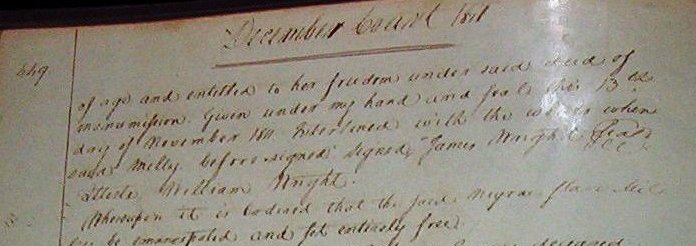 December Court 1811
649
of age and entitled to her freedom under said deed of
manumission. Given under my hand and seal this 13
day of November 1811. Interlined with the words when
said Milly before signed. Signed, James Wright Seal
William Wright.
Whereupon it is ordered that the said Negroe slave
be emancipated and set entirely free.